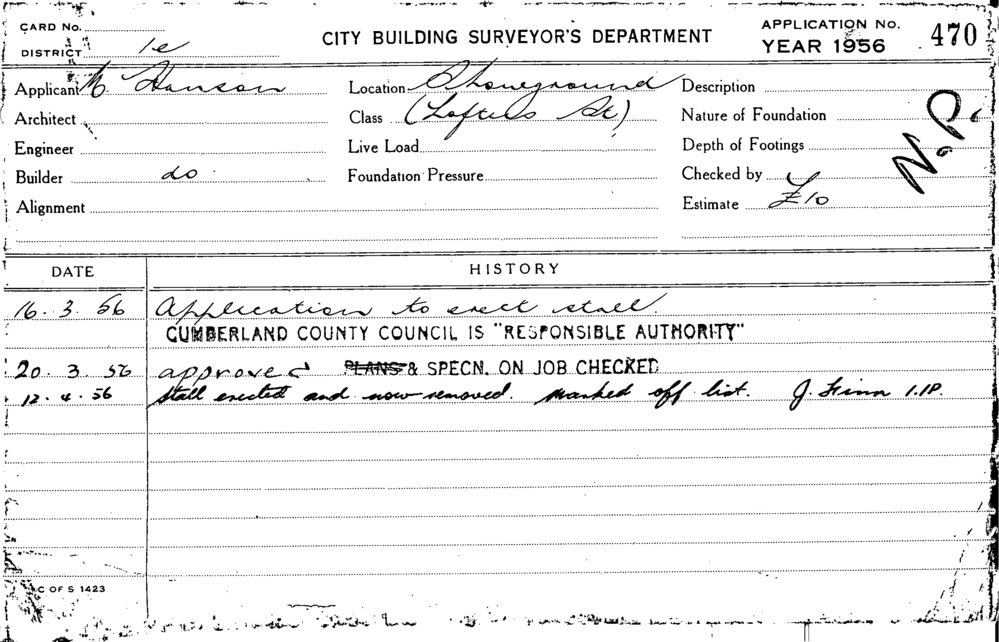 CARD No.
DISTRICT 1e
CITY BUILDING SURVEYOR'S DEPARTMENT
APPLICATION No. 470
YEAR 1956
Applicant M. Hanson
Location Showground
Description
Architect
Class (Loftus St)
Nature of Foundation
N.P.
Engineer
Live Load
Depth of Footings
Builder do
Foundation Pressure
Checked by
Alignment
Estimate £10
DATE HISTORY
16. 3. 56 Application to erect stall.
CUMBERLAND COUNTY COUNCIL IS "RESPONSIBLE AUTHORITY"
20. 3. 56 approved PLANS & SPECN. ON JOB CHECKED
12. 4. 56 Stall erected and now removed. Marked off list. J.
C OF S 1423